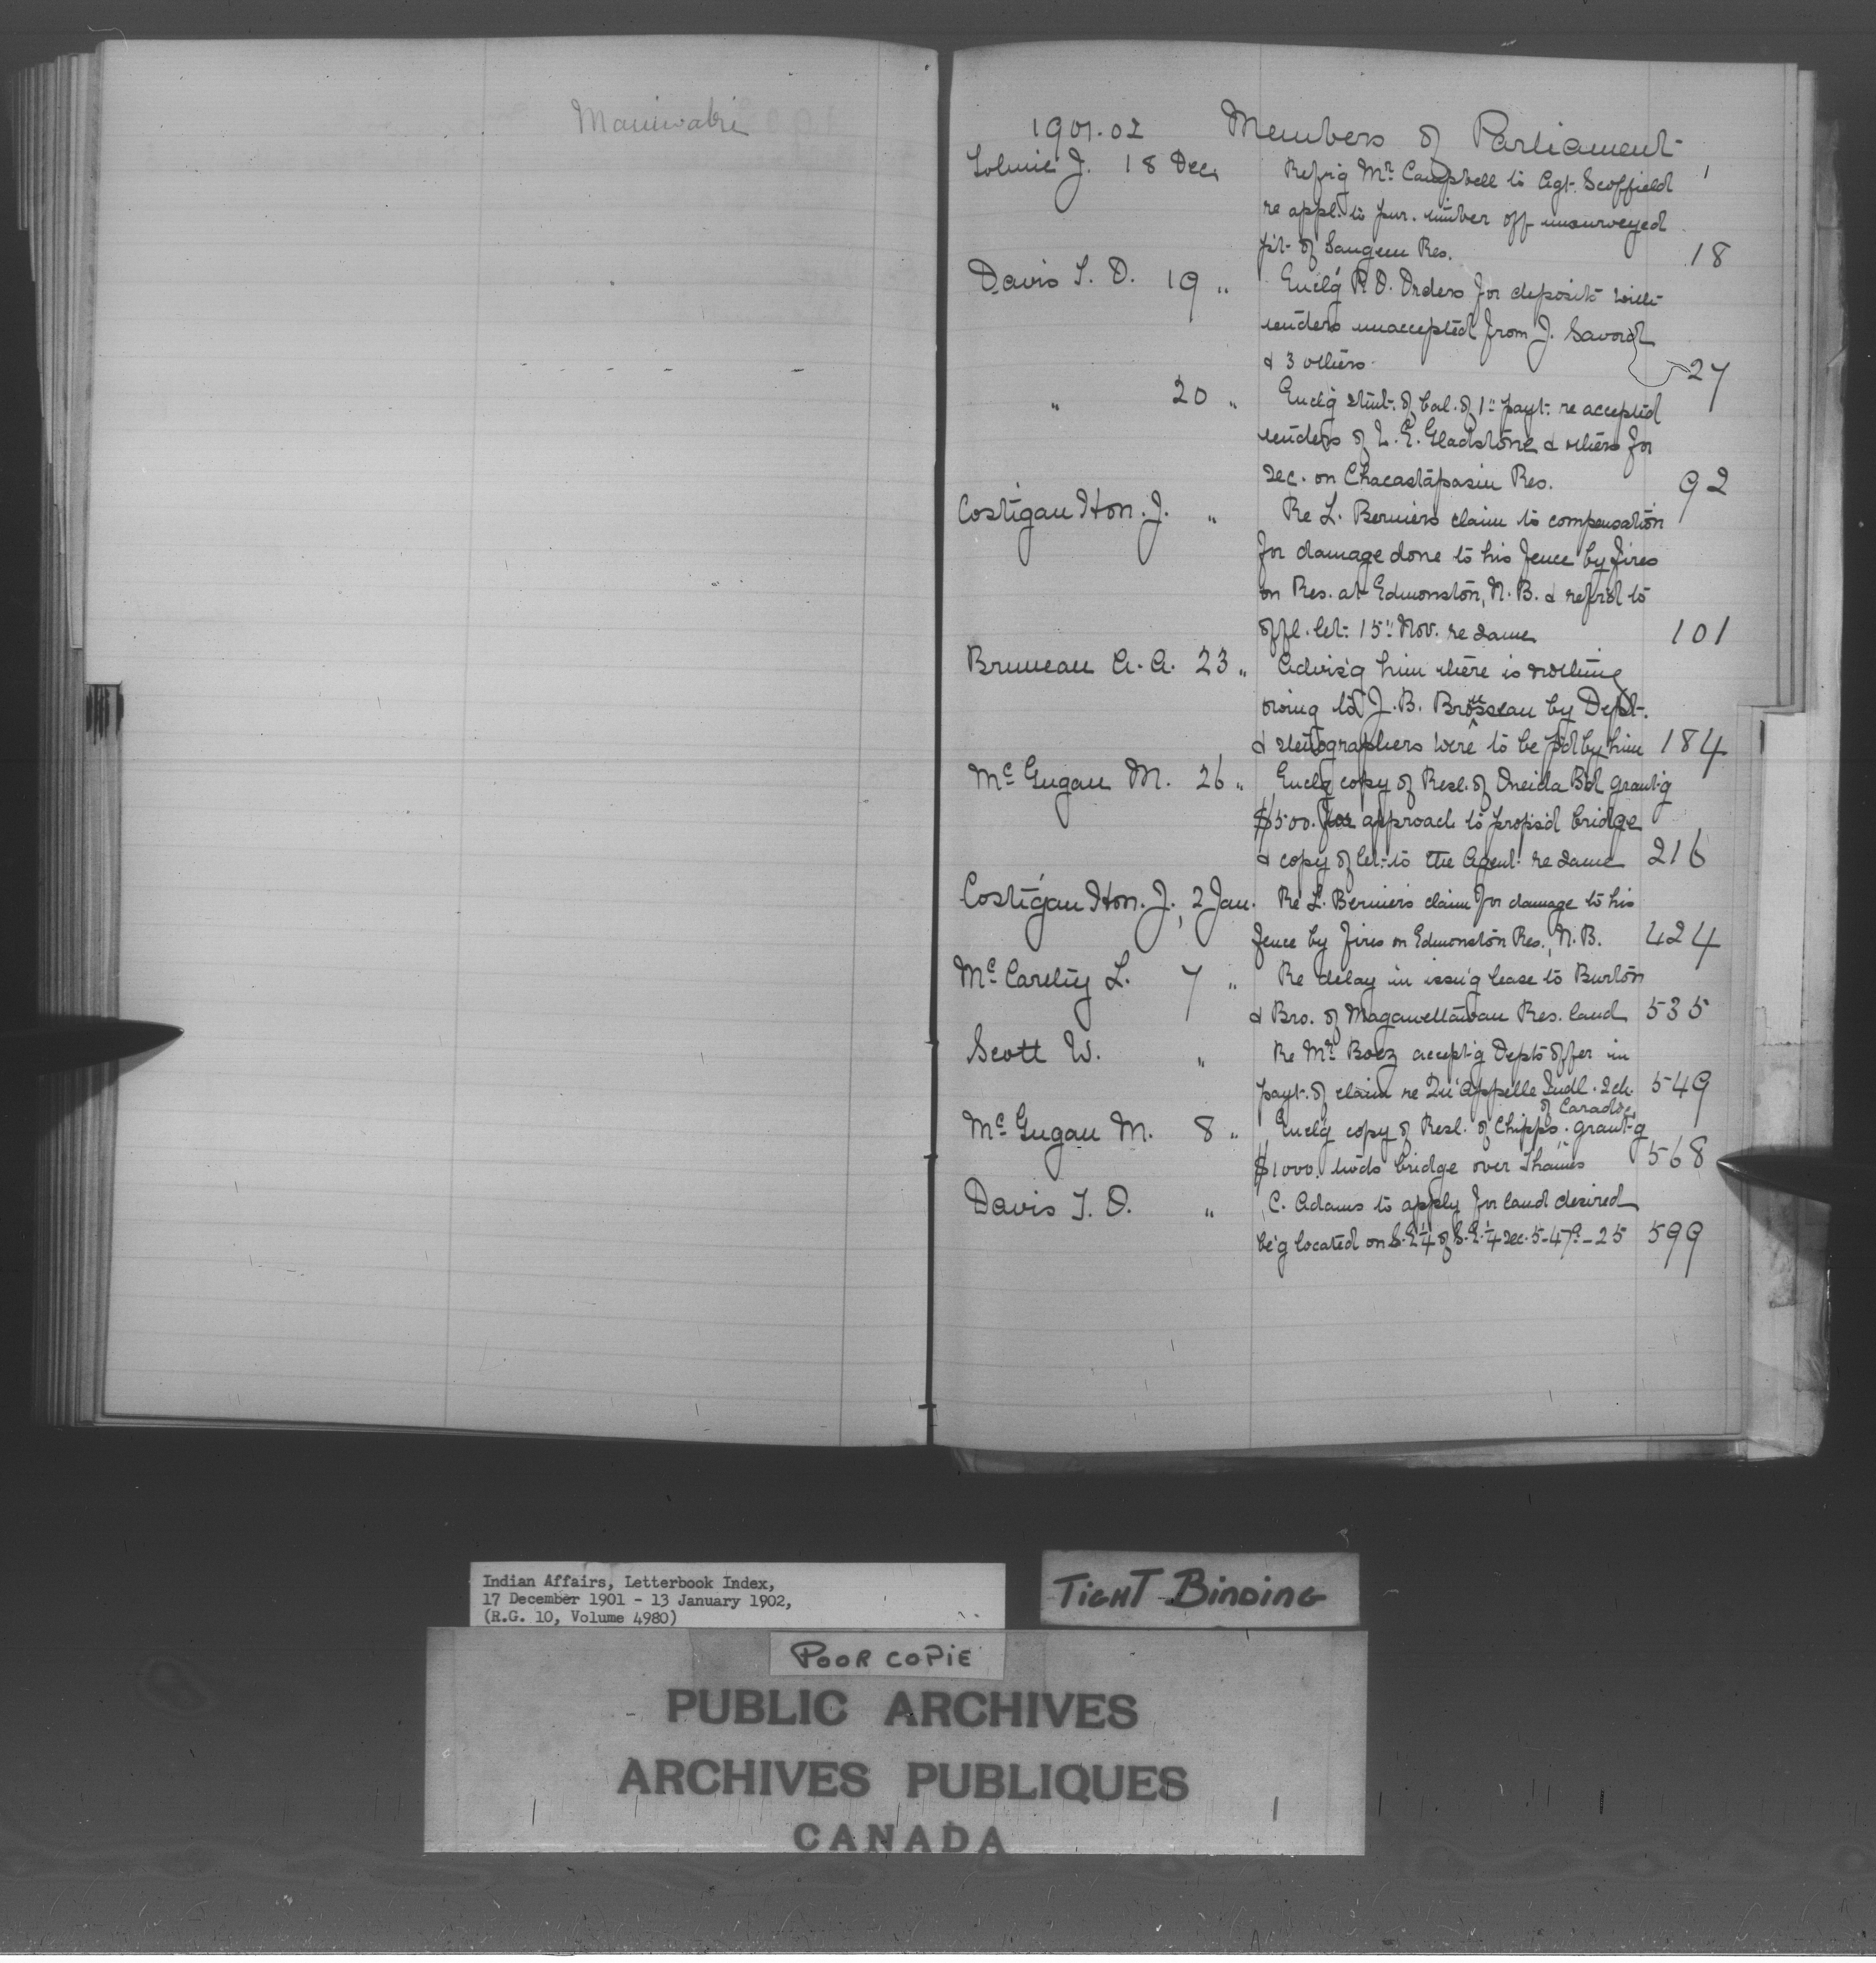 Maniwaki
1901-02 Members of Parliament
Tolmie J. 18 Dec. Ref'g Mr. Campbell to Agt. Scoffield 1
re appl. to pur. timber off unsurveyed
p't of Saugeen Res. 18
Davis T. O. 19 " Encl'g P.O. Orders for deposits with
tenders unaccepted from J. Savord
& 3 others. 27
" 20 " Encl'g stmt. of bal. of 1st payt. re accepted
tenders of L. E. Gladstone & others for
sec. on Chacastapasin Res. 92
Costigan Hon. J. " Re L. Berniers claim to compensation
for damage done to his fence by fires
on Res. at Edmonston, N.B. & ref'd to
offl. let. 15" Nov. re same 101
Bruneau A. A. 23 " Advis'g him there is nothing
owing to J. B. Brosseau by Dept.
& stenographers were to be p'd by him 184
McGugan M. 26 " Encl'g copy of Resl. of Oneida Bd grant'g
$500. for approach to props'd bridge
& copy of let. to the Agent re same 216
Costigan Hon. J., 2 Jan. Re L. Berniers claim for damage to his
fence by fires on Edmonston Res., N.B. 424
McCarthy L. 7 " Re delay in issu'g lease to Burton
& Bro. of Maganettawan Res. land 535
Scott W. " Re Mr. accept'g Depts offer in
payt. of claim re Qu'Appelle Indl. Sch. 549
of Caradoc
McGugan M. 8 " Encl'g copy of Resl. of Chipps. grant'g
$1000. tw'ds bridge over Thames 568
Davis T. O. " C. Adams to apply for land desired
be'g located on S.E ¼ of S.E. ¼ Sec. 5-47a-25 599
Indian Affairs, Letterbook Index,
17 December 1901 - 13 January 1902,
(R.G. 10, Volume 4980)
TIGHT BINDING
POOR COPIE
PUBLIC ARCHIVES
ARCHIVES PUBLIQUES
CANADA